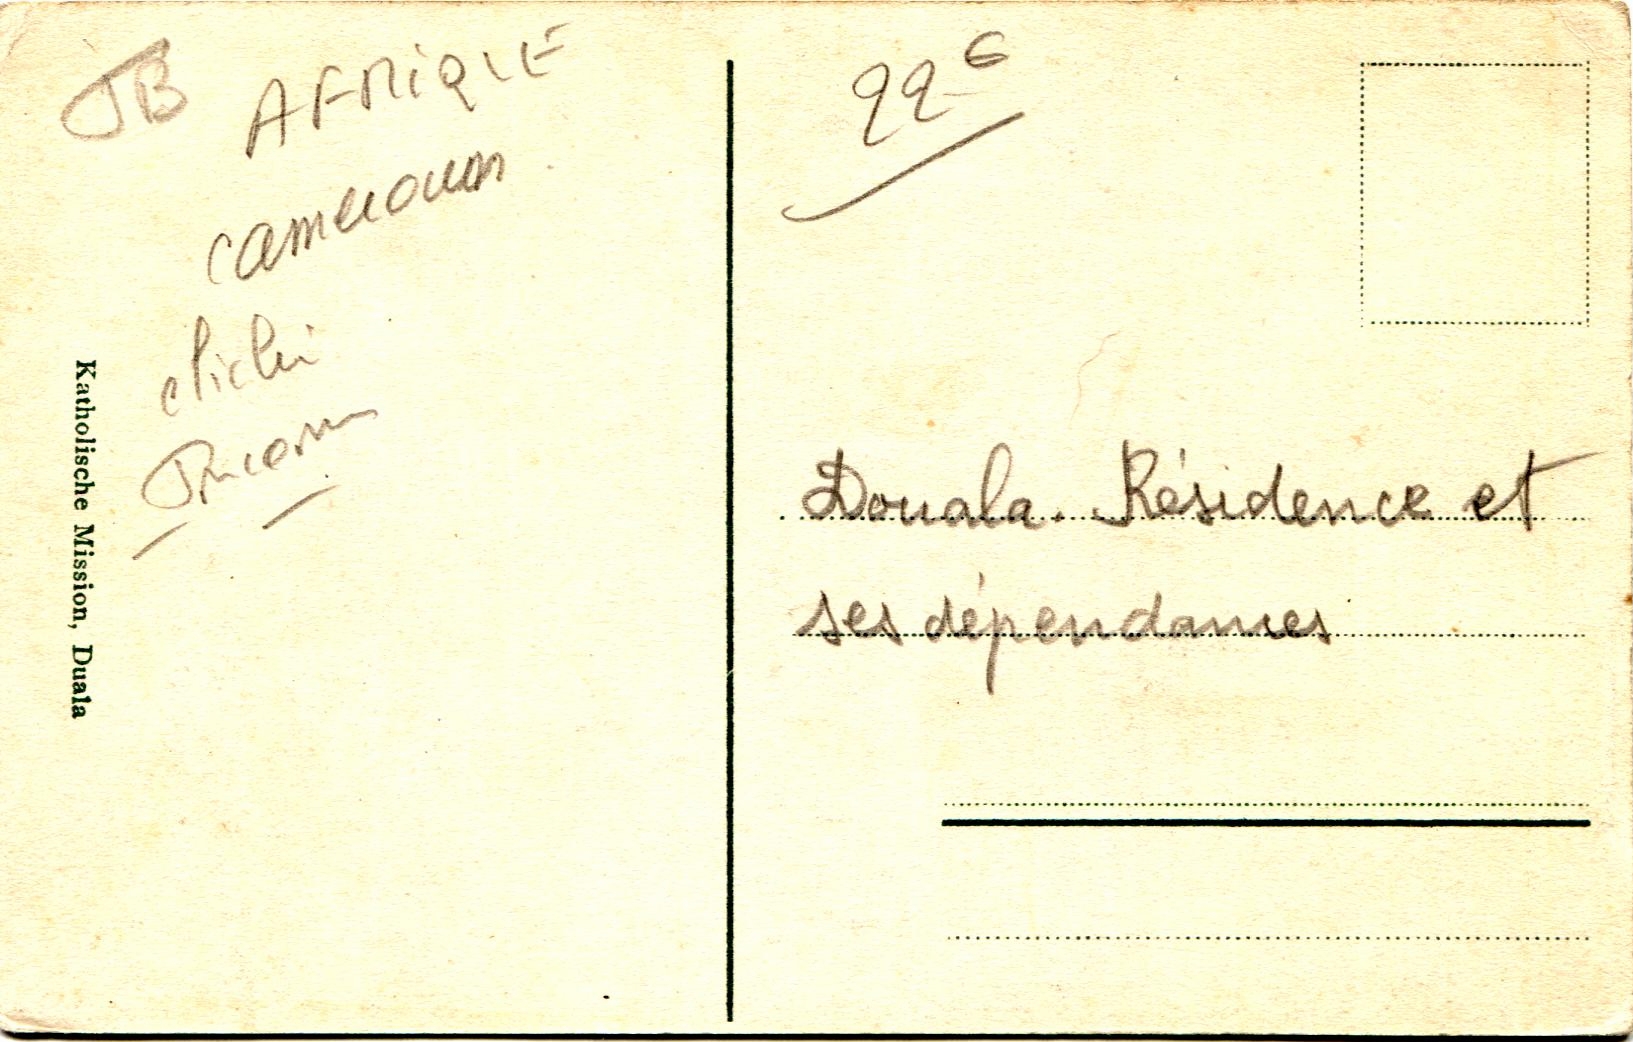 JB
AFRIQUE
cameroun
cliché
22 €
Douala. Résidence et
ses dépendances
Katholische Mission, Duala